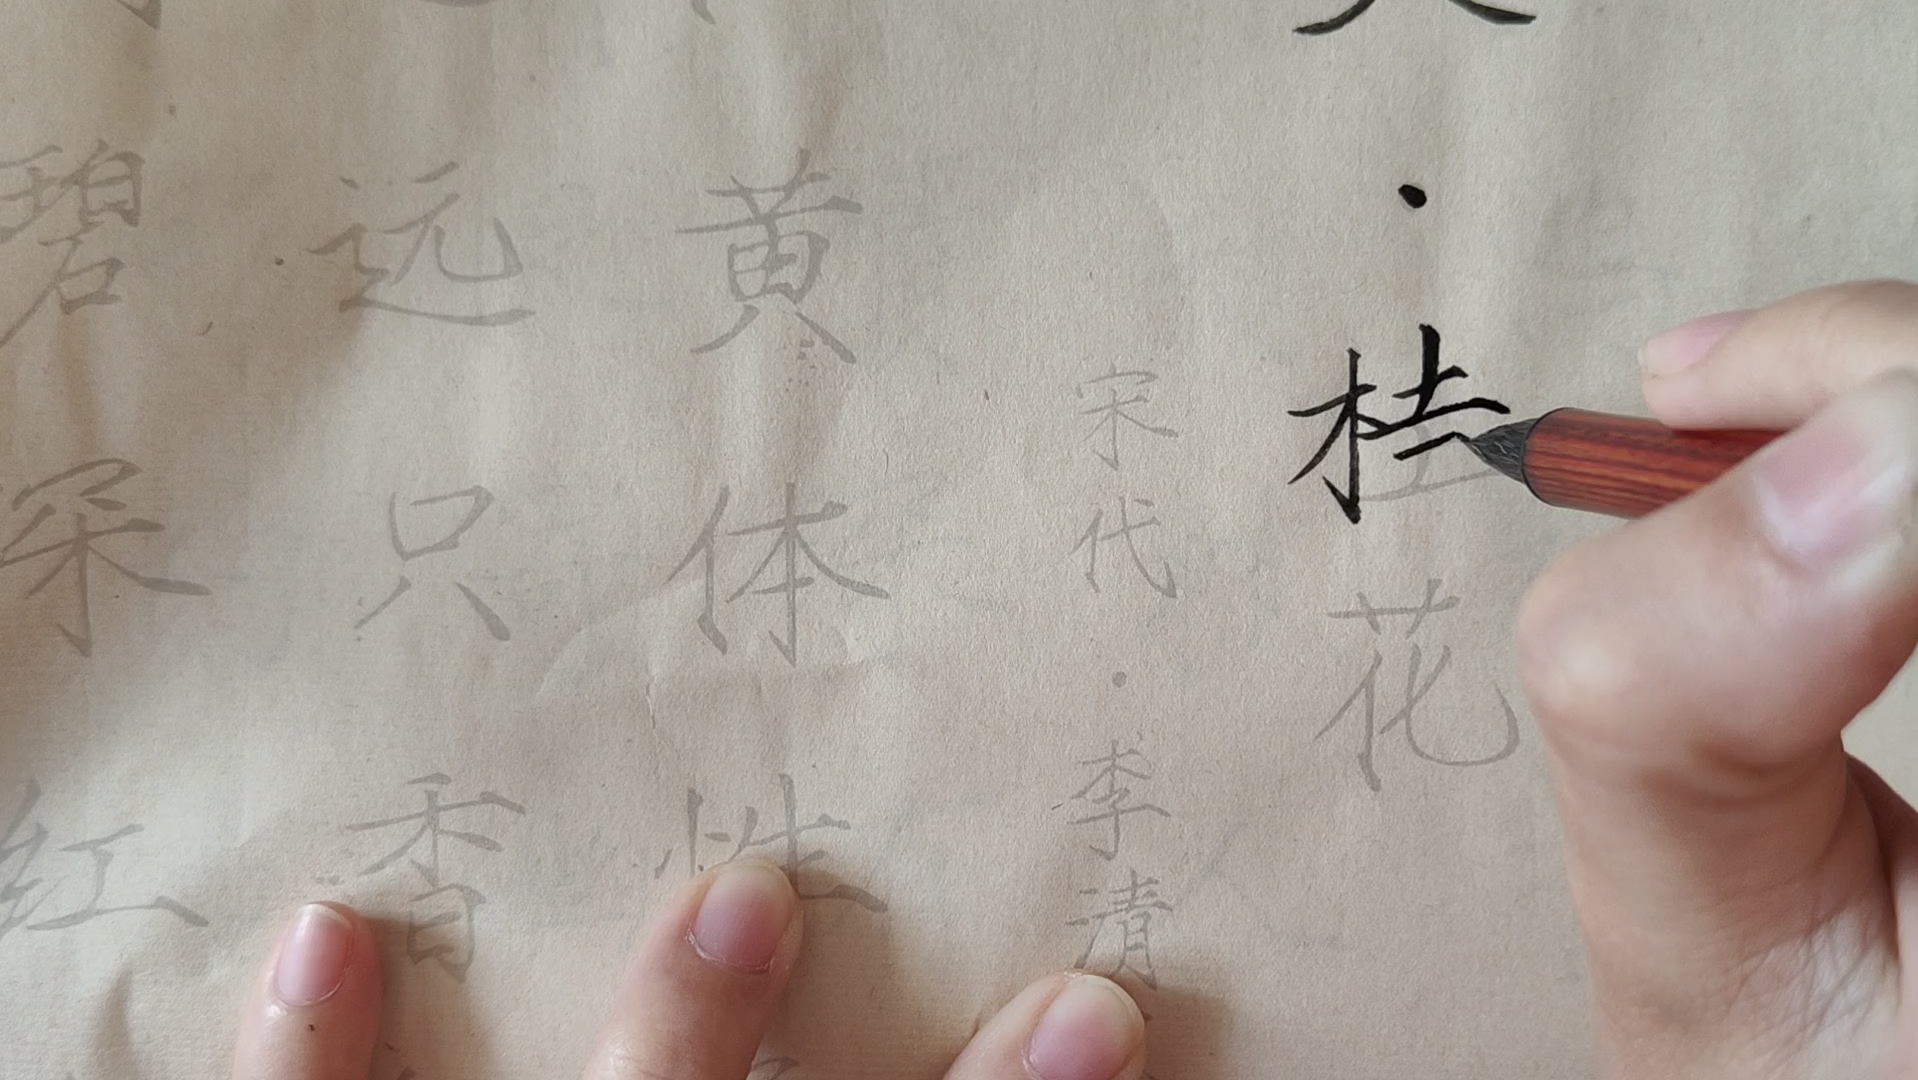 ·桂花
宋代·李清
黄体性
远只香
碧深红